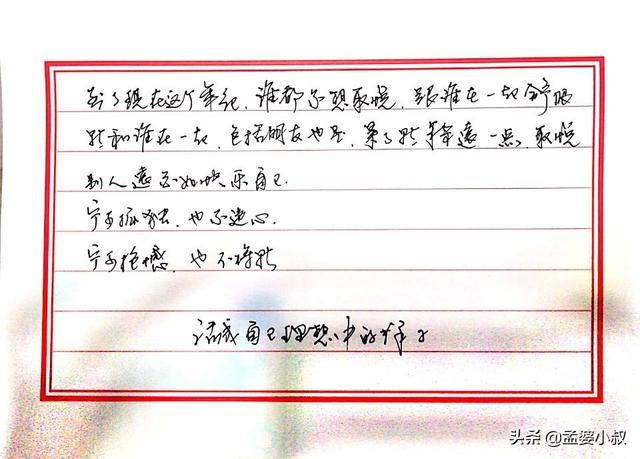 到了现在这个年纪，谁都不想取悦，跟谁在一起舒服
就和谁在一起，包括朋友也是，累了就躲远一点，取悦
别人远不如快乐自己．
宁可孤独，也不违心．
宁可抱憾，也不将就
活成自己理想中的样子
头条 @孟婆小叔